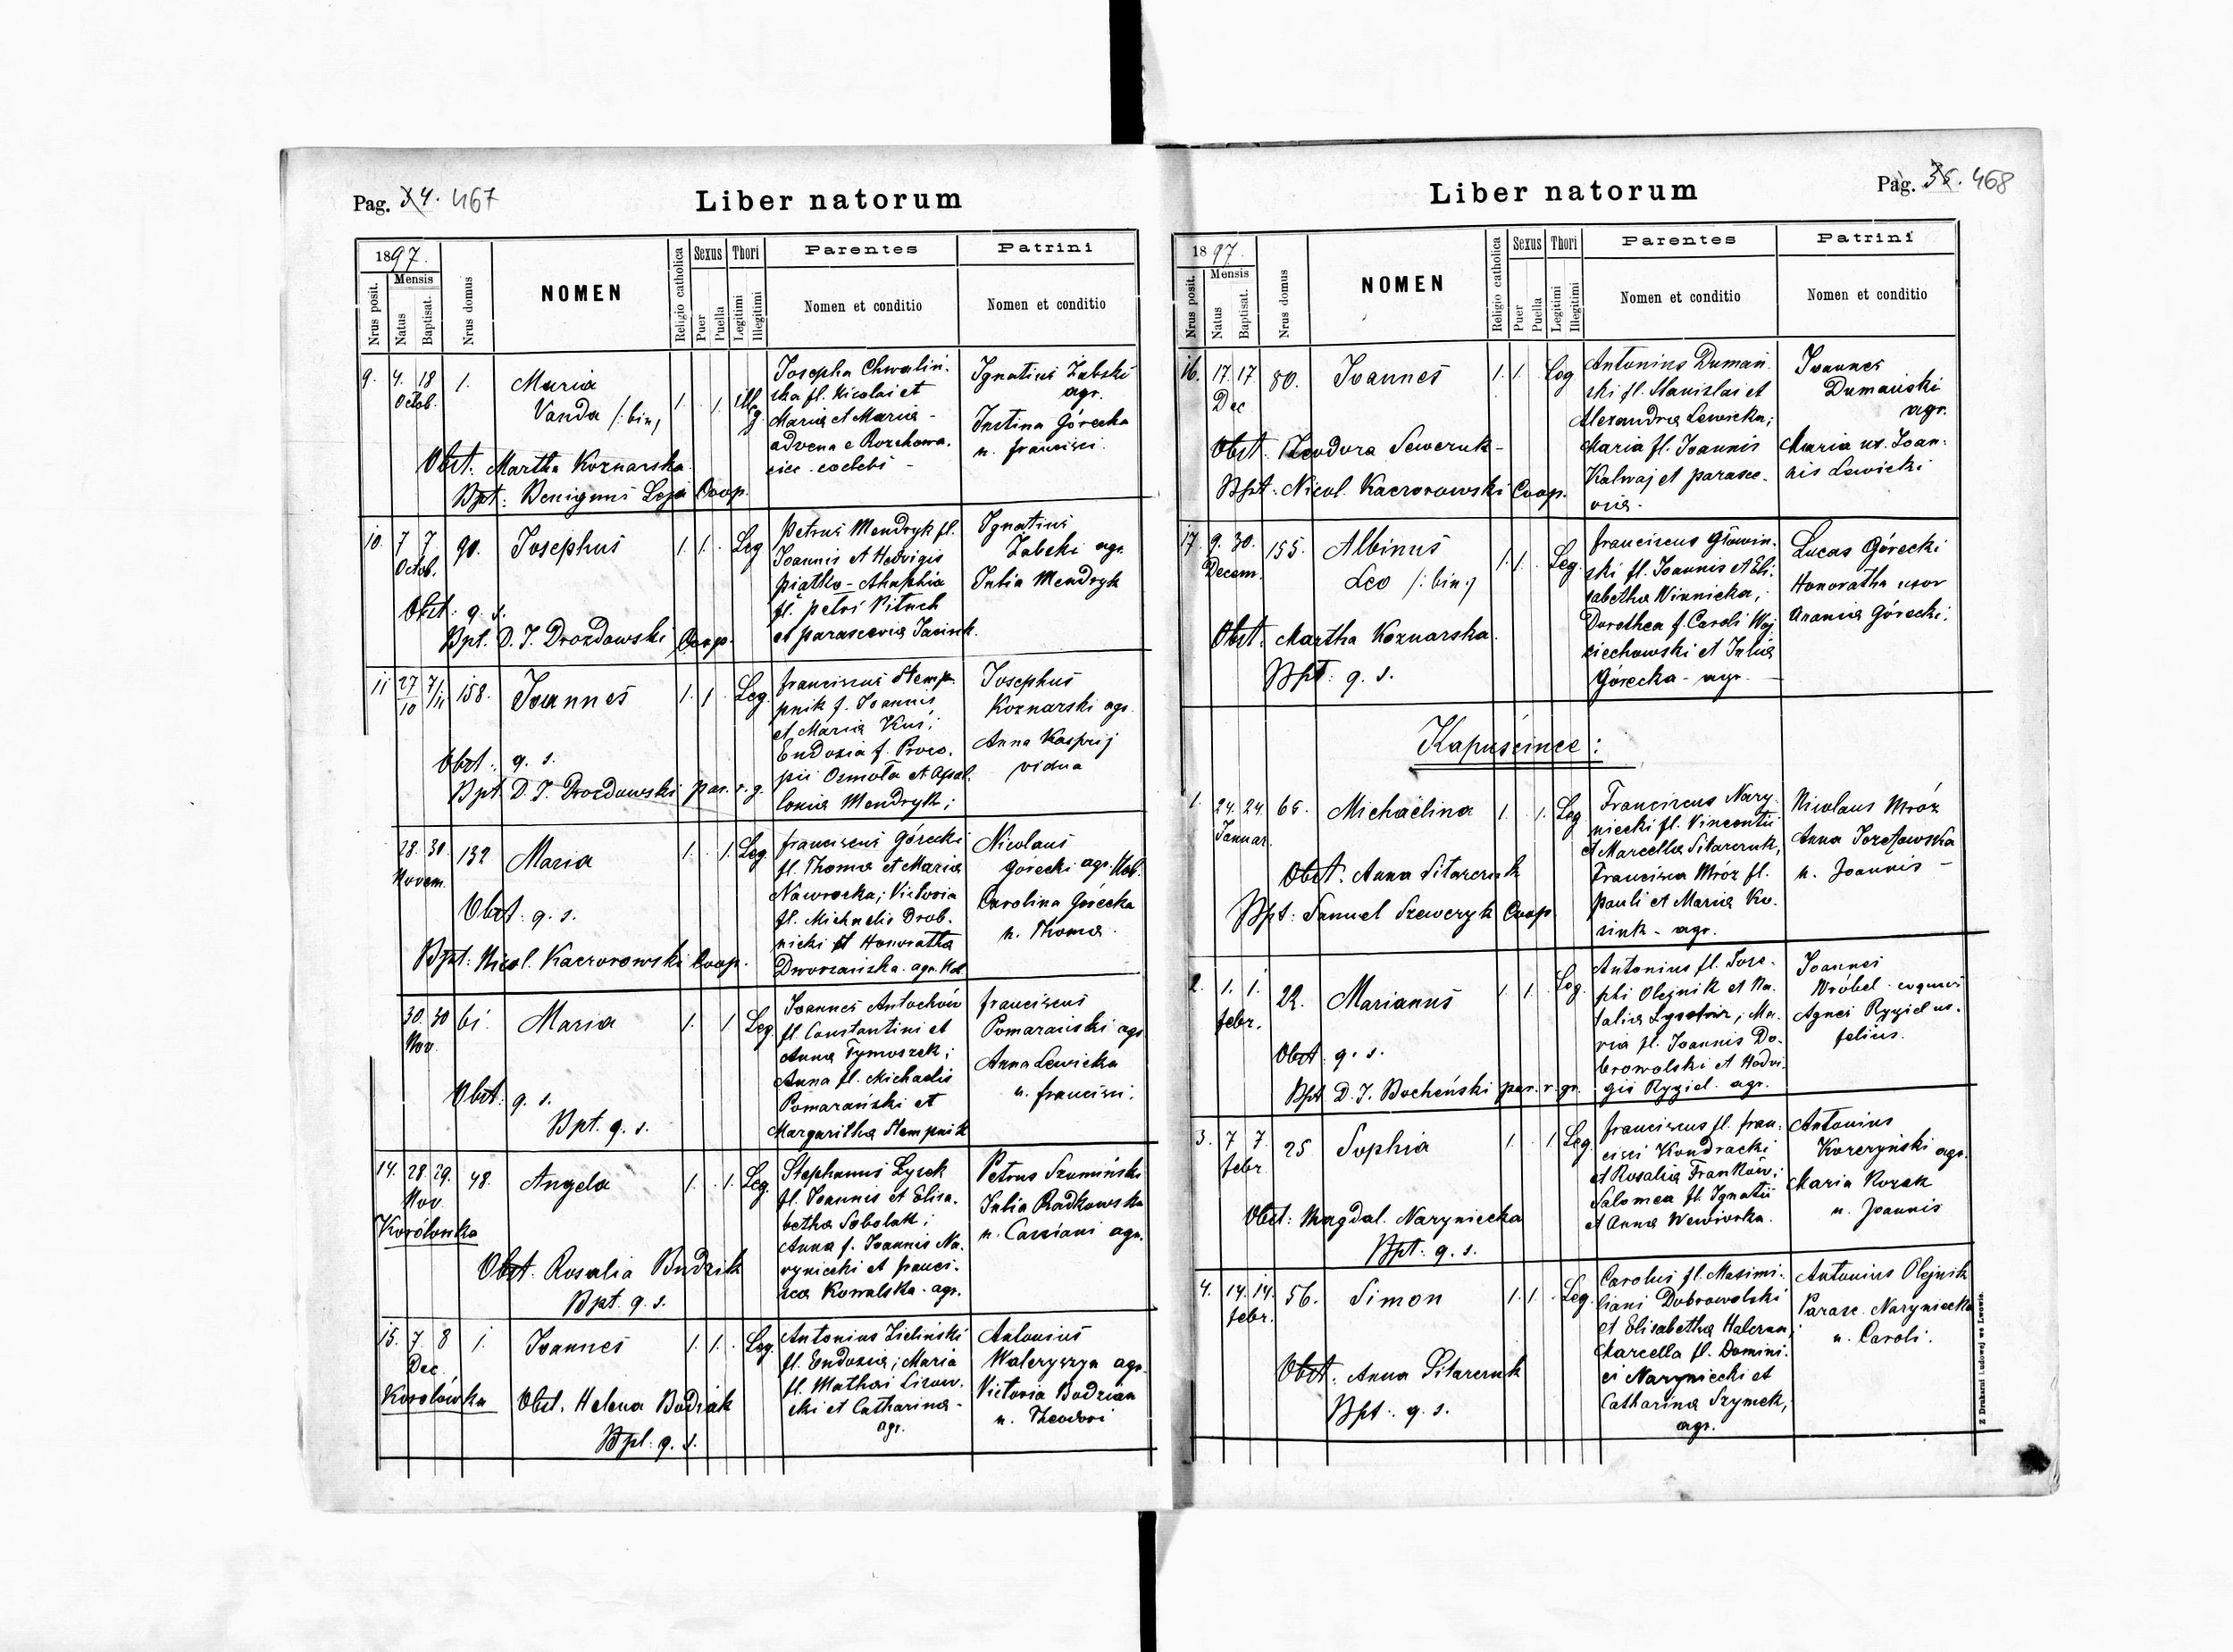 Pag. 34. 467
Liber natorum
1897.
Mensis
Nrus posit.
Natus
Baptisat.
Nrus domus
NOMEN
Religio catholica
Sexus
Puer
Puella
Thori
Legitimi
Illegitimi
Parentes
Nomen et conditio
Patrini
Nomen et conditio
9. 4. 18 Octob. 1.
Maria
Vanda /: bin,
1. 1. illg
Josepha Chwaliń-
ska fl. Nicolai et
Maria et Maria -
advena e Rozchowa.
ciec. coelebs -
Ignatius Żabski
agr.
Justina Górecka
u. francisci.
Obst. Martha Koznarska
Bpt: Benignus Leja Coop.
10. 7 7 Octob. 90. Josephus 1. 1. Leg
Petrus Mendryk fl.
Joannis et Hedvigis
piatko - Ahaphia
fl. petri Pituch
et parascevia Jacink.
Ignatius
Żabski agr.
Julia Mendryk
Obst: q. s.
Bpt. D. J. Drozdowski Coop.
11 27/10 7/11 158. Joannes 1. 1. Leg.
franciscus Stemp-
pnik f. Joannis
et Maria Kuś;
Eudoxia f. Proco-
pii Ormoła et Apol.
lonia Mendryk;
Josephus
Koznarski agr.
Anna Kasprij
vidua
Obst: q. s.
Bpt. D. J. Drozdowski par. r. g.
28. 30. Novem. 132 Maria 1. 1. Leg.
franciscus Górecki
fl. Thoma et Maria
Nawrocka; Victoria
fl. Michaelis Drob-
nicki et Honoratha
Dworzańska. agr. Nob.
Nicolaus
Górecki agr. Nob.
Carolina Górecka
u. Thoma.
Obst: q. s.
Bpt: Nicol. Kaczorowski Coop.
30. 30 Nov. 61. Maria 1. 1 Leg.
Joannes Antochów
fl. Constantini et
Anna Tymoszek;
Anna fl. Michaelis
Pomarański et
Margaritha Stempnik
franciscus
Pomarański agr
Anna Lewicka
u. francisci.
Obst: q. s.
Bpt. q. s.
14. 28. 29. Nov 48. Angela 1. 1. Leg.
Korólowka
Stephanus Łysek
fl. Joannes et Elisa-
betha Sobolak;
Anna f. Joannis Na-
ryniecki et franci-
sca Kowalska. agr.
Petrus Szumiński
Julia Radkowska
u. Cassiani agr.
Obst. Rosalia Budzik
Bpt. q. s.
15. 7 8 Dec. 1. Joannes 1. 1. Leg.
Korolówka
Antonius Zieliński
fl. Eudoxia; Maria
fl. Mathai Lisow-
ski et Catharina -
agr.
Antonius
Waleryszyn agr.
Victoria Bodzian
u. Theodori
Obst. Helena Bodziak
Bpt: q. s.
Liber natorum
Pag. 35. 468
1897.
Mensis
Nrus posit.
Natus
Baptisat.
Nrus domus
NOMEN
Religio catholica
Sexus
Puer
Puella
Thori
Legitimi
Illegitimi
Parentes
Nomen et conditio
Patrini
Nomen et conditio
16. 17. 17 Dec 80. Joannes 1. 1. Leg
Antonius Dumań-
ski fl. Stanislai et
Alexandra Lewicka;
Maria fl. Joannis
Kalwaj et parasce-
via.
Joannes
Dumański
agr.
Maria ux. Joan-
nis Lewicki
Obst. Theodora Seweruk -
Bpt. Nicol. Kaczorowski Coop.
17. 9. 30. Decem. 155.
Albinus
Leo /: bin:/
1. 1. Leg.
franciscus Głowin-
ski fl. Joannis et Eli-
sabetha Winnicka;
Dorothea f. Caroli Woj
ciechowski et Julia
Górecka - agr. -
Lucas Górecki
Honoratha uxor
Anania Górecki.
Obst. Martha Koznarska.
Bpt: q. s.
Kapuścince:
1. 24. 24. Januar. 65. Michaëlina 1. 1. Leg
Franciscus Nary-
niecki fl. Vincentii
et Marcella Sitarczuk,
Francisca Mróz fl.
pauli et Maria Ko-
sink - agr.
Nicolaus Mróz
Anna Jozefowska
u. Joannis -
Obst. Anna Sitarczuk
Bpt: Samuel Szewczyk Coop
2. 1. 1. febr. 22. Marianus 1. 1. Leg.
Antonius fl. Jose-
phi Olejnik et Na-
talia; Ma-
ria fl. Joannis Do-
browolski et Hedvi-
gis Rygiel. agr.
Joannes
Wróbel
Agnes Rygiel ux.
felicis.
Obst: q. s.
Bpt D. J. Bocheński par. r. gr.
3. 7 7. febr 25 Sophia 1. 1 Leg.
franciscus fl. fran-
cisci Kondracki
et Rosalia Franków;
Salomea fl. Ignatii
et Anna Wewiorka.
Antonius
Korczyński agr.
Maria Kozak
u. Joannis
Obst: Magdal. Naryniecka
Bpt: q. s.
4. 14. 14. febr. 56. Simon 1. 1. Leg.
Carolus fl. Maximi-
liani Dobrowolski
et Elisabetha Halerun;
Marcella fl. Domini-
ci Naryniecki et
Catharina Szymek,
agr.
Antonius Olejnik
Parasc. Naryniecka
u. Caroli.
Obst. Anna Sitarczuk
Bpt: q. s.
Z Drukarni Ludowej we Lwowie.